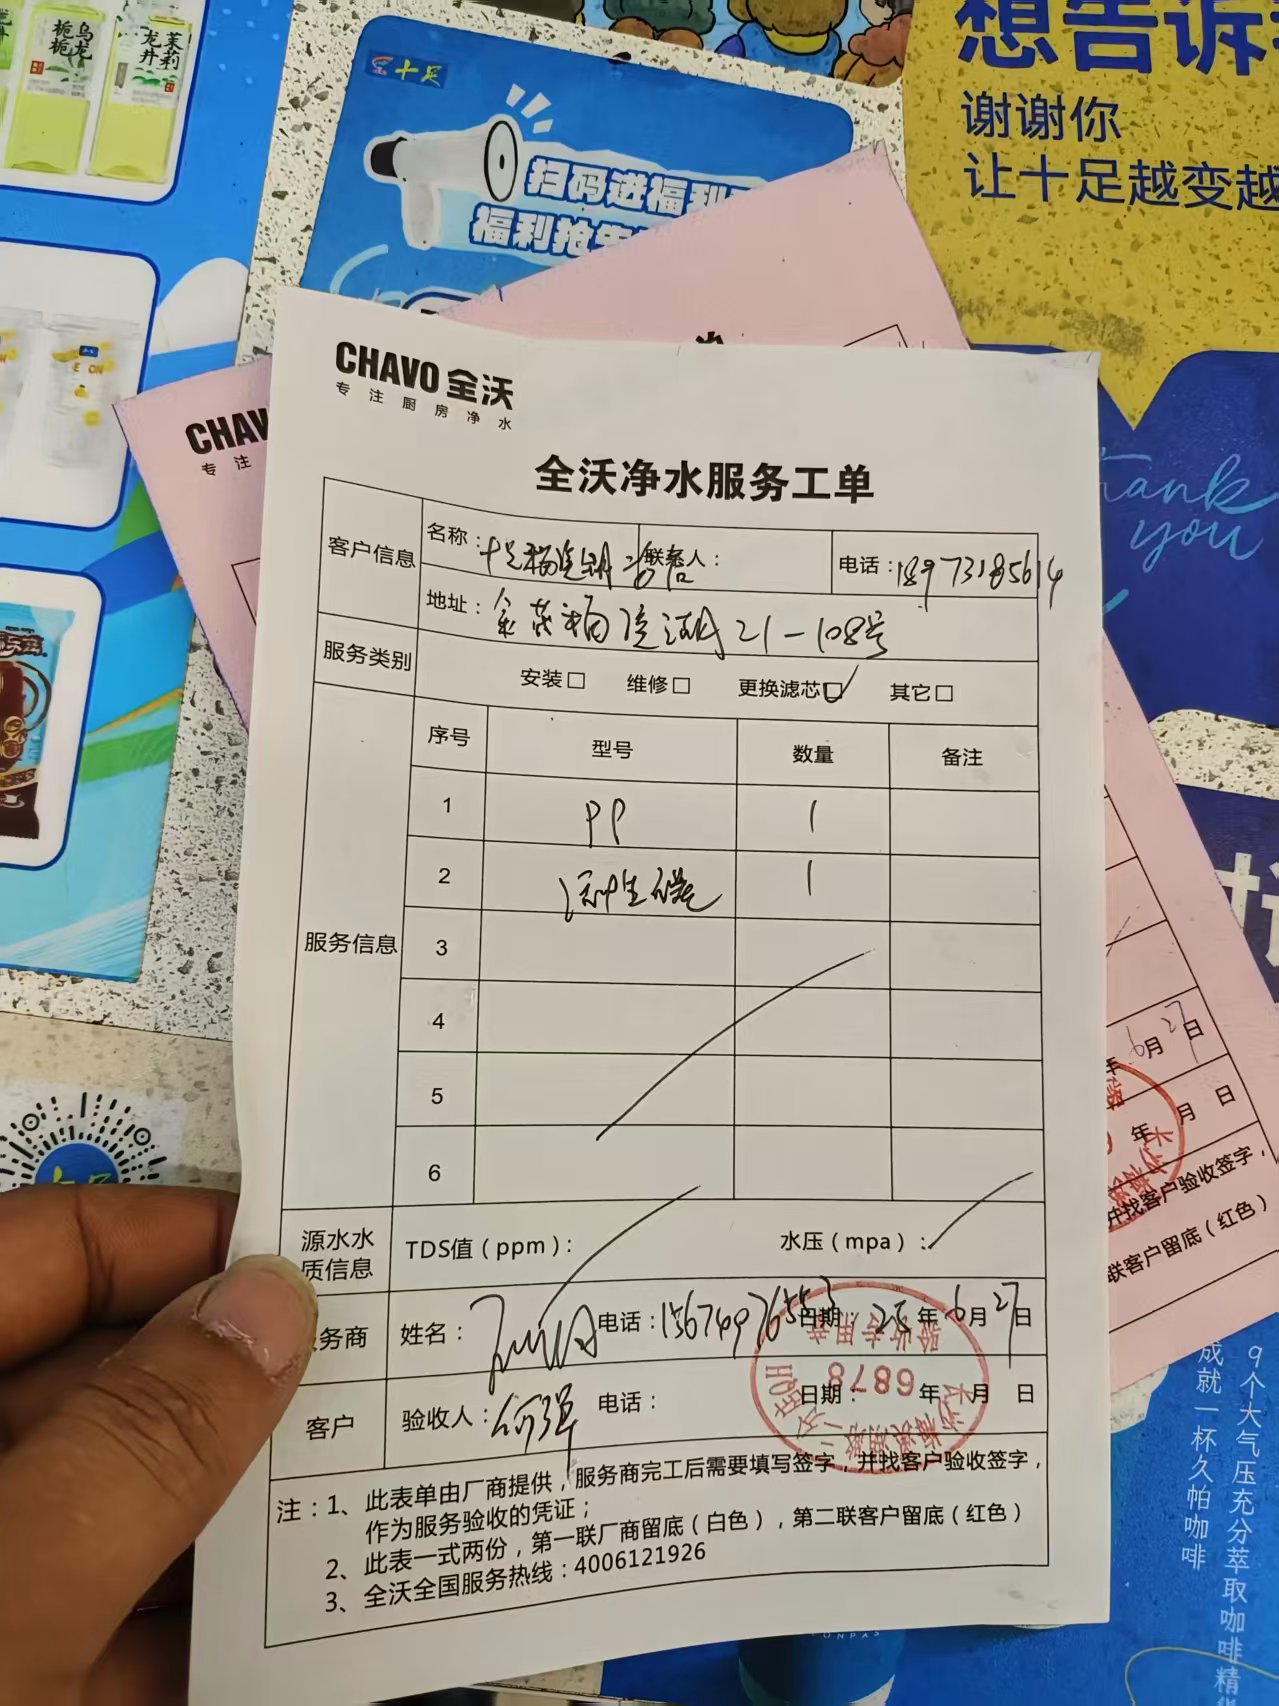 乌龙
栀栀
茉莉
龙井
十足
扫码进福利
福利抢
想告诉
谢谢你
让十足越变越
thank
you
CHAVO 全沃
专注厨房净水
CHAV
专 注
全沃净水服务工单
客户信息
名称：
联系人：
电话：18973185614
地址：金茂梅溪湖21-108号
服务类别
安装□ 维修□ 更换滤芯☑ 其它□
服务信息
序号 型号 数量 备注
1 PP 1
2 1
3
4
5
6
源水水
质信息
TDS值（ppm）：
水压（mpa）：
务商
姓名：
电话：15674976553
日期：25年6月27日
客户
验收人：何军
电话：
日期： 年 月 日
验收专用章
6878
注：1、此表单由厂商提供，服务商完工后需要填写签字，并找客户验收签字，
作为服务验收的凭证；
2、此表一式两份，第一联厂商留底（白色），第二联客户留底（红色）
3、全沃全国服务热线：4006121926
年6月27日
年 月 日
并找客户验收签字，
联客户留底（红色）
9个大气压充分萃取咖啡精
成就一杯久帕咖啡